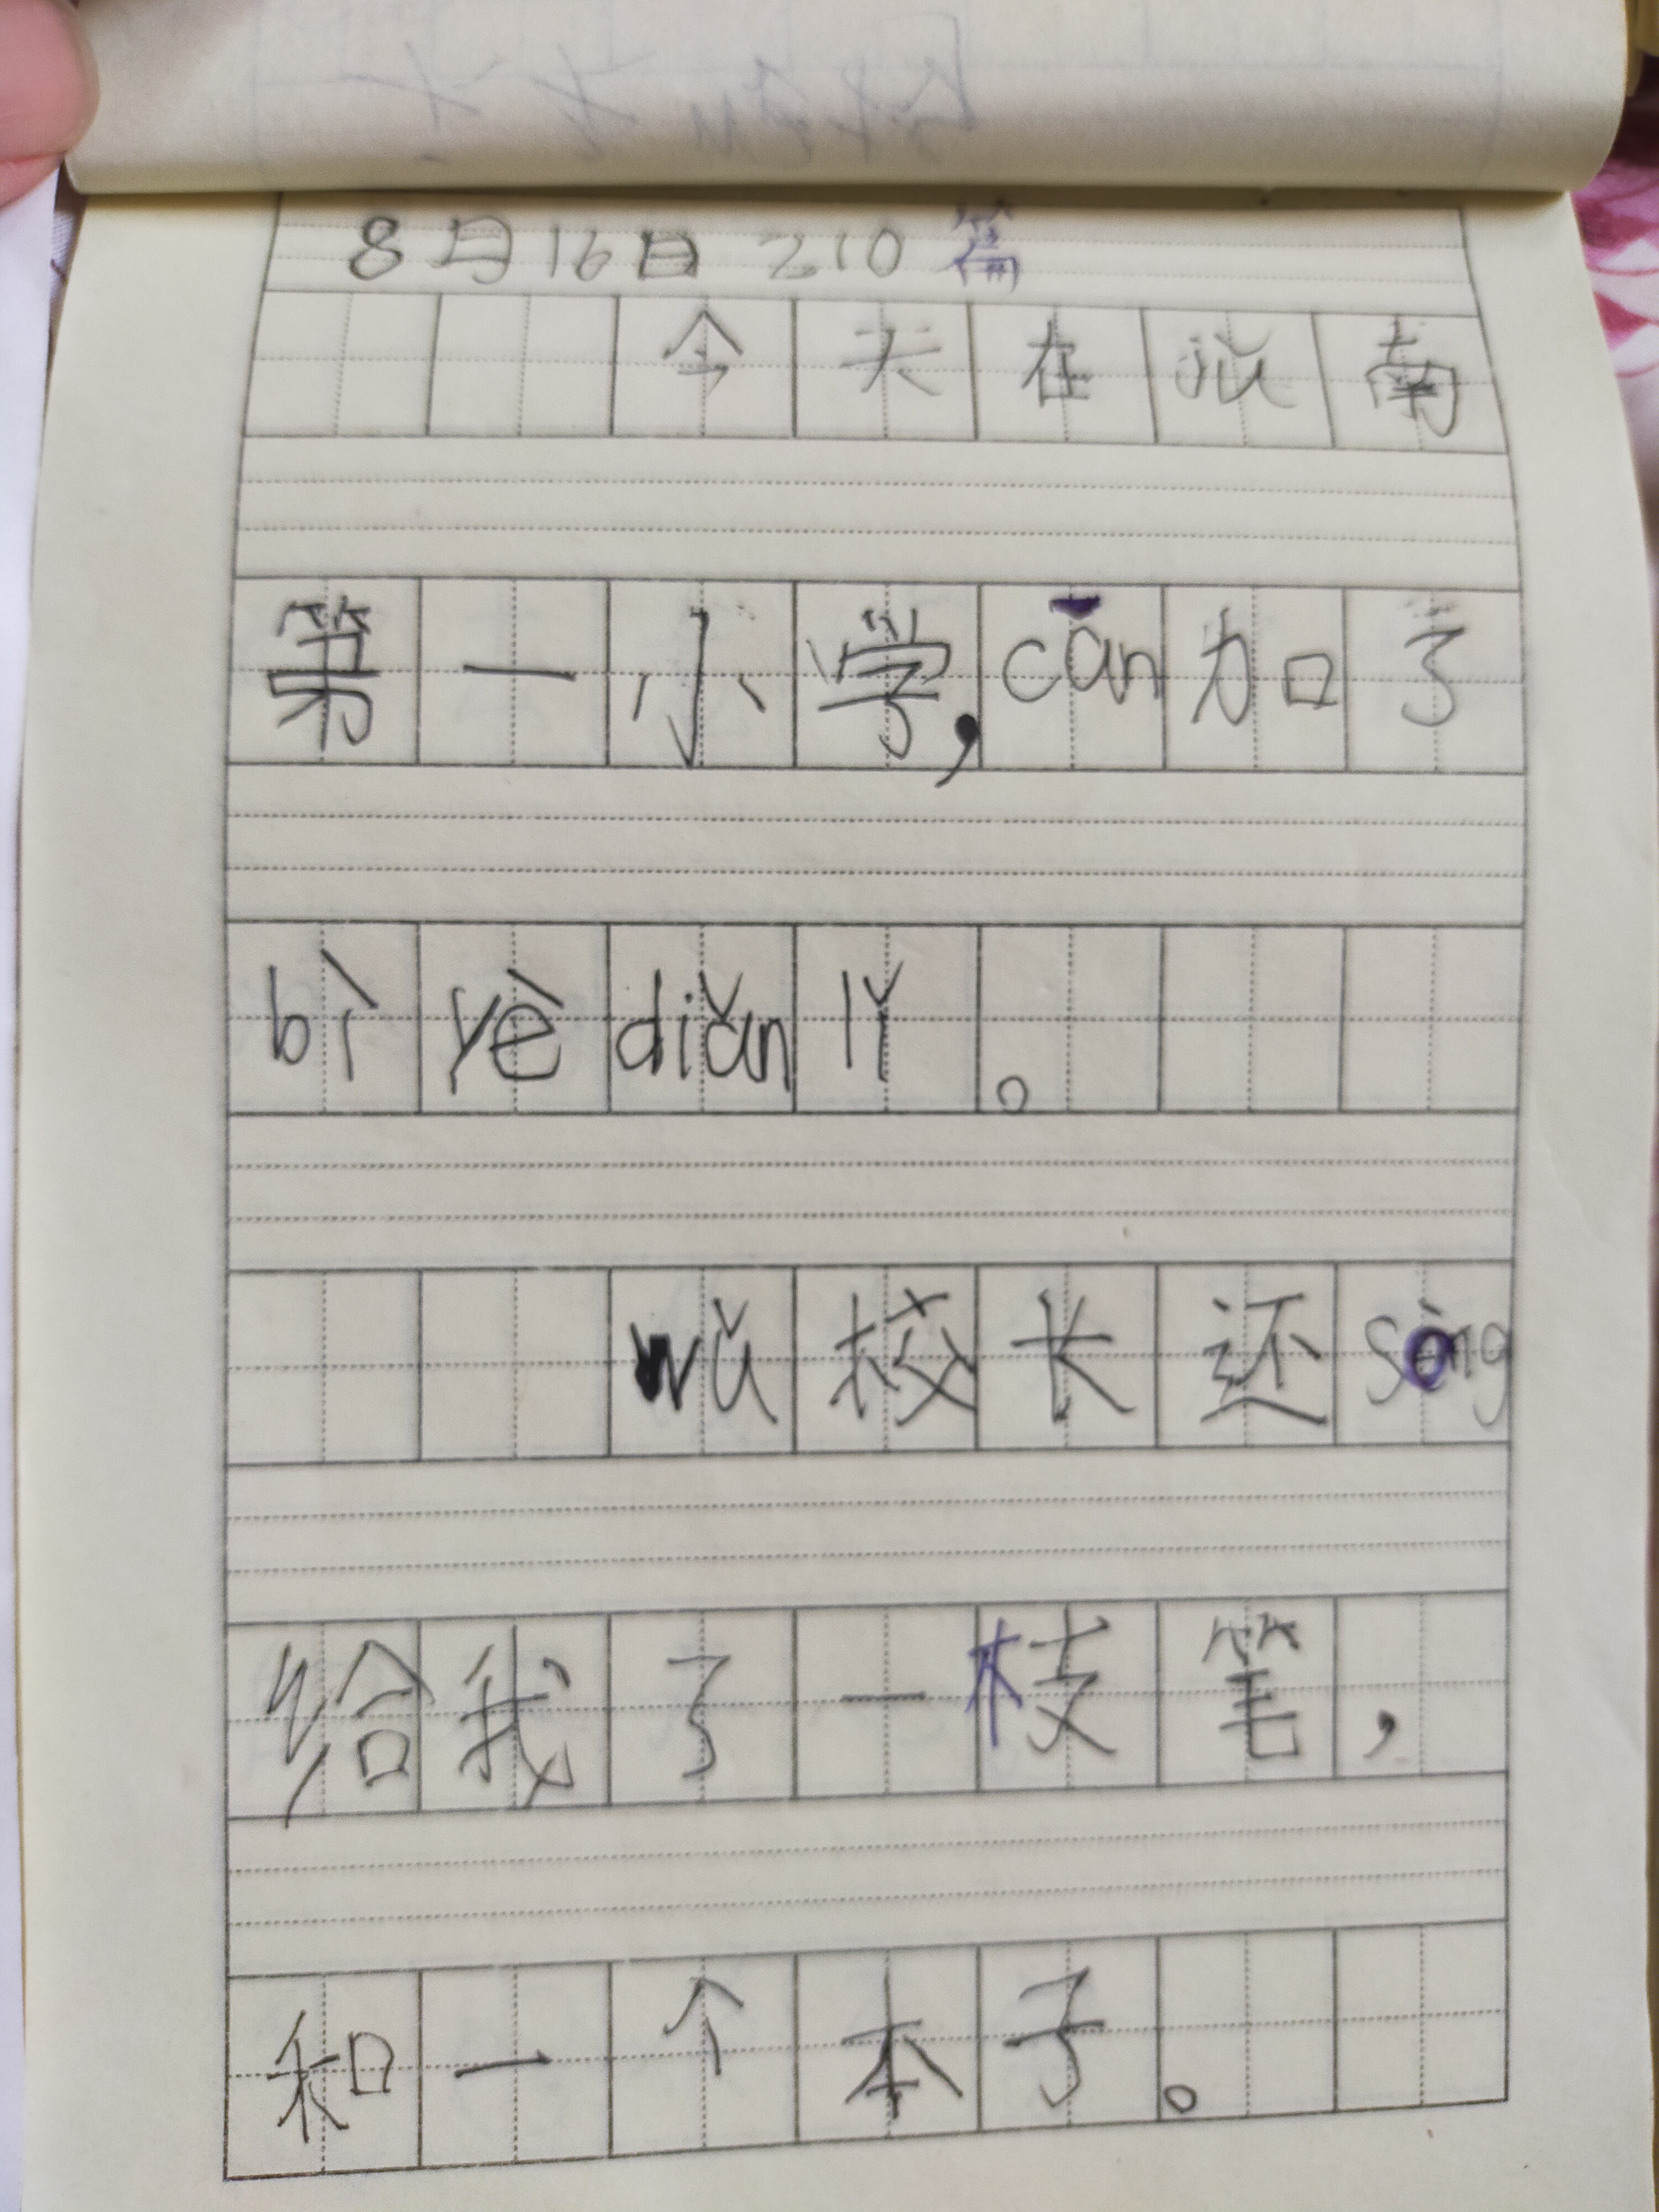 8月16日 210篇
今天在jiǔ南
第一小学,cān加了
bì yè diǎn lǐ。
wǔ校长还sòng
给我了一枝笔,
和一个本子。